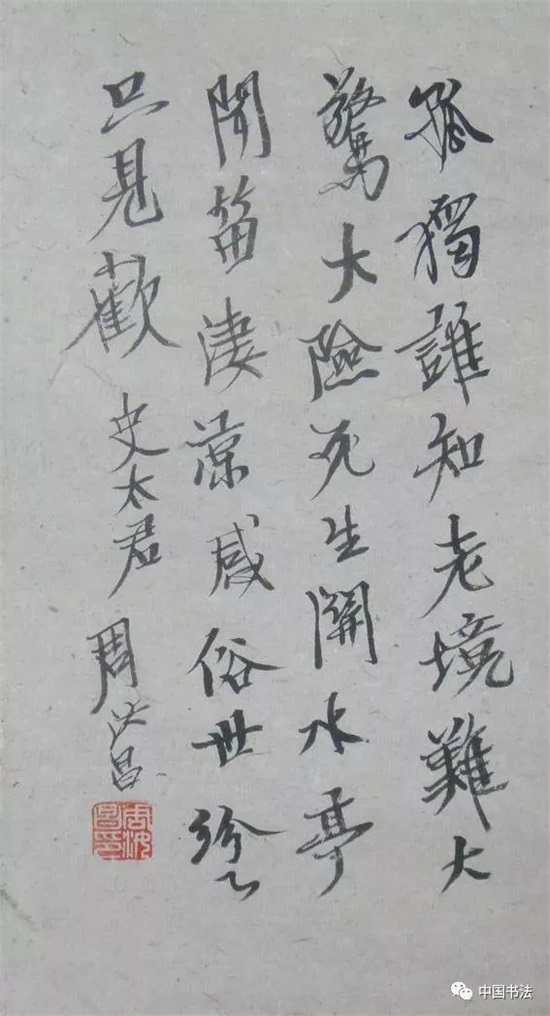 孤獨誰知老境難大
驚大險死生關水亭
聞笛淒涼感俗世紛〻
只見歡
史太君
周汝昌
周汝昌印
中国书法